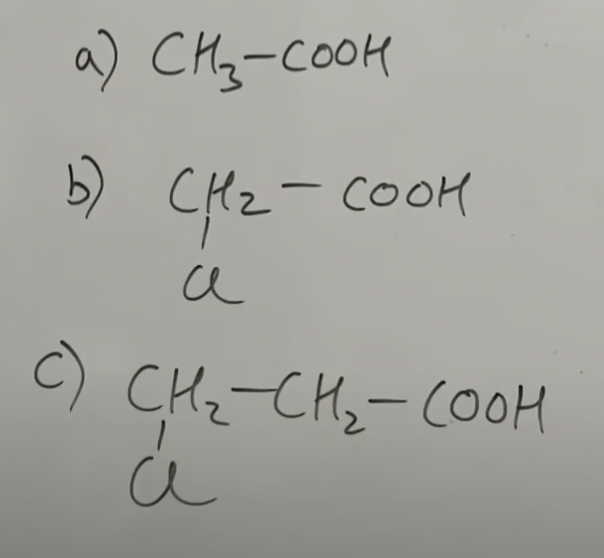 a) CH₃-COOH
b) CH₂ - COOH
Cl
c) CH₂-CH₂-COOH
Cl